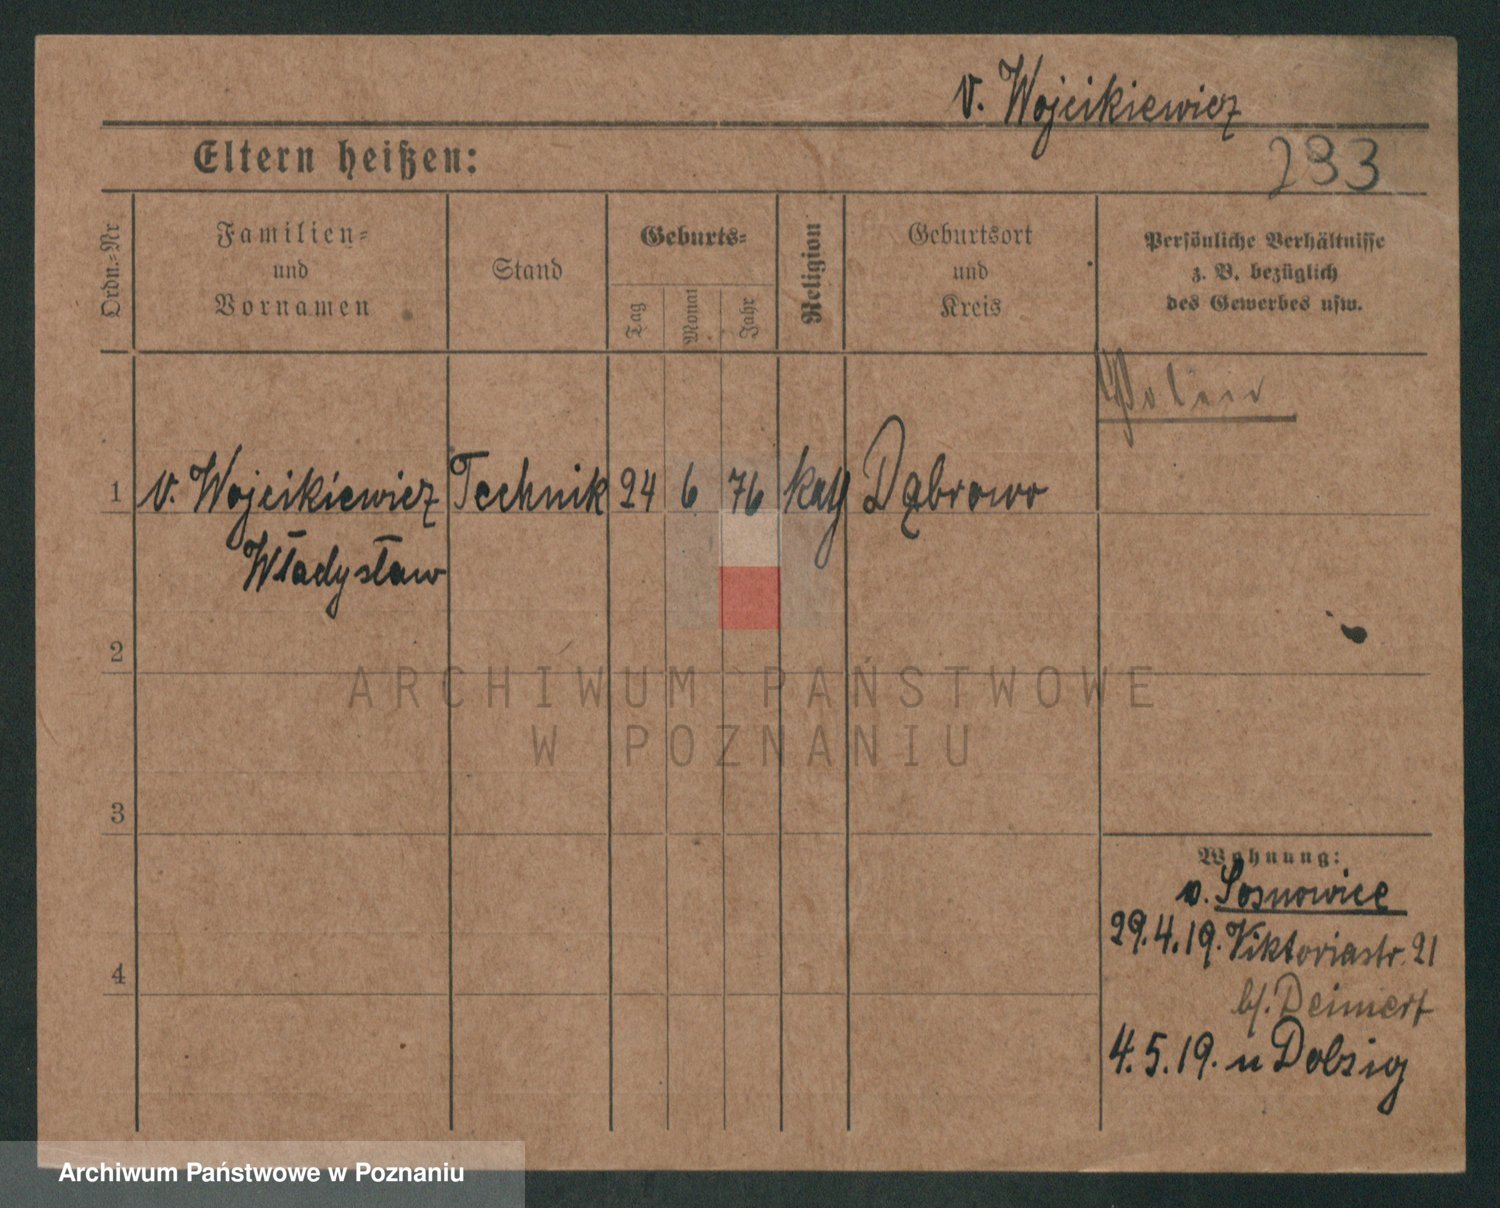 v. Wojcikiewicz
Eltern heißen:
293
Ordn.-Nr
Familien-
und
Vornamen
Stand
Geburts-
Tag
Monat
Jahr
Religion
Geburtsort
und
Kreis
Persönliche Verhältnisse
z. B. bezüglich
des Gewerbes usw.
Polen
1 v. Wojcikiewicz Technik 24 6 76 kath Dąbrowo
Władysław
2
ARCHIWUM PAŃSTWOWE
W POZNANIU
3
Wohnung:
v. Sosnowice
29.4.19. Viktoriastr. 21
4
b/. Deimert
4.5.19. n Dolzig
Archiwum Państwowe w Poznaniu